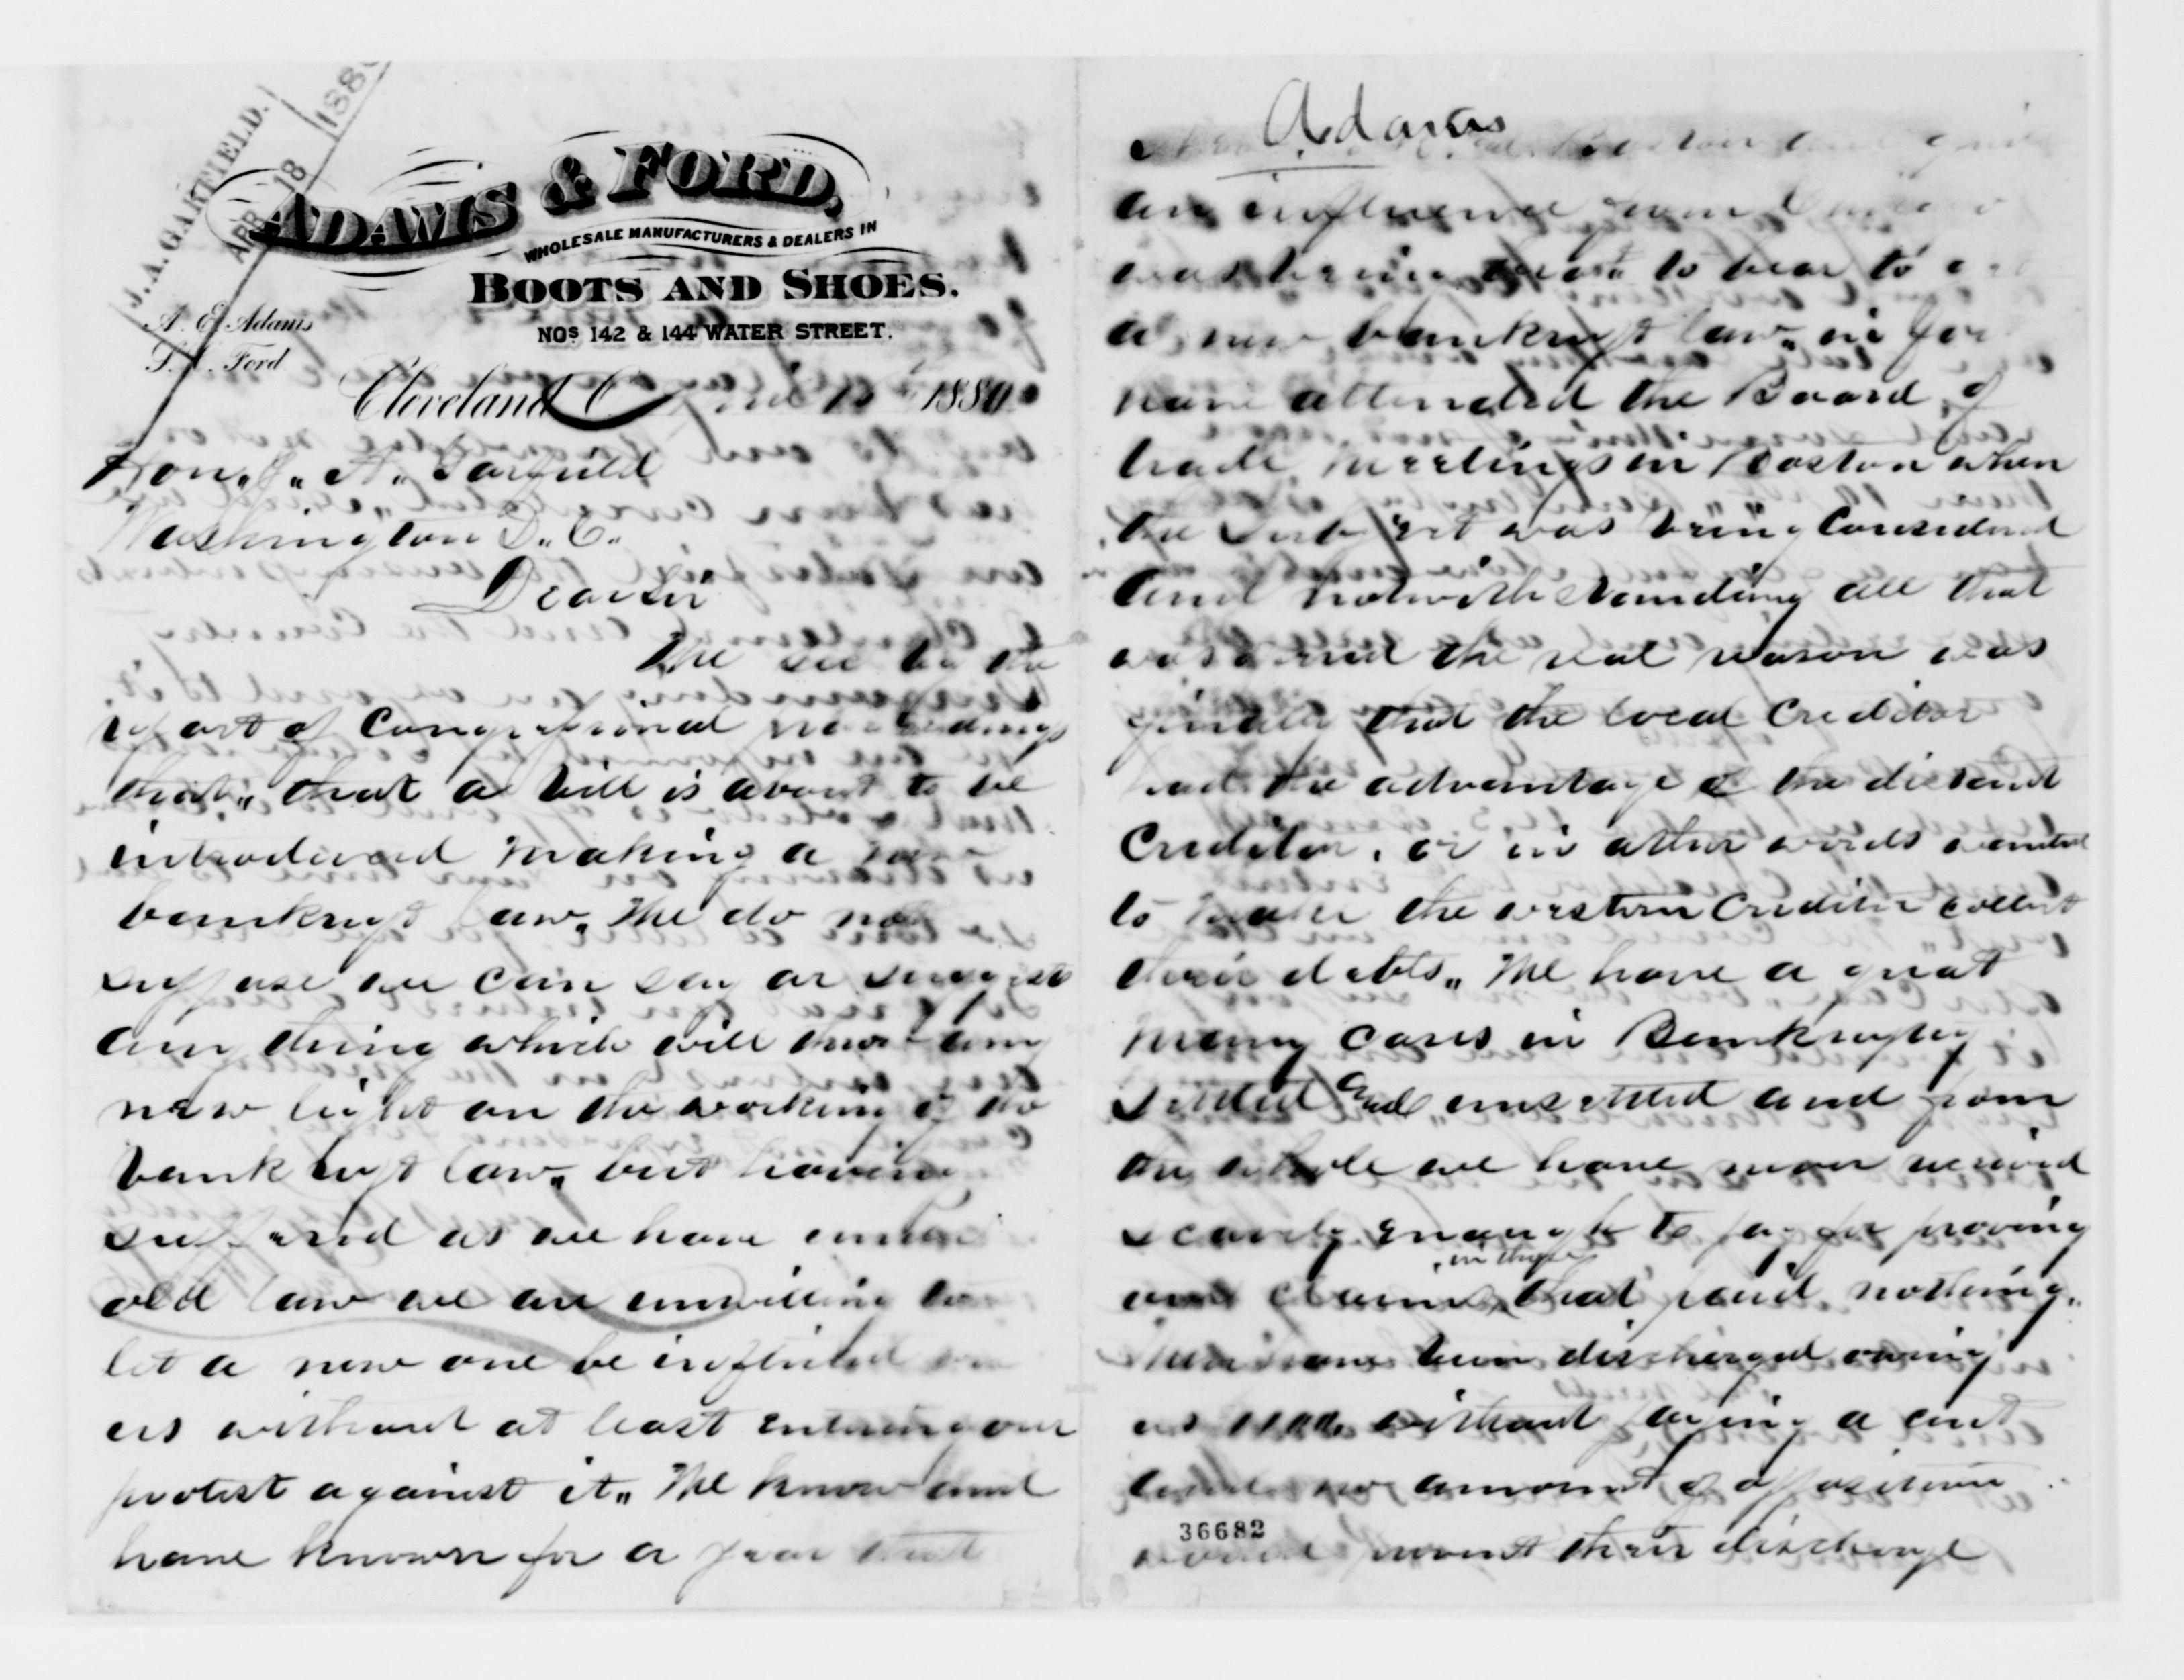 J. A. GARFIELD.
APR 18 1880
ADAMS & FORD,
WHOLESALE MANUFACTURERS & DEALERS IN
BOOTS AND SHOES.
NOS 142 & 144 WATER STREET.
A. E. Adams
Ford
Cleveland O 1880
Hon. J. A. Garfield
Washington D. C.
Dear Sir
We see by the
report of Congressional proceedings
that that a bill is about to be
introduced making a new
bankrupt law. We do not
suppose we can say or suggest
any thing which will throw any
new light on the working of the
bankrupt law. but having
suffered as we have under
old law we are unwilling to
let a new one be inflicted on
us without at least entering our
protest against it. We know and
have known for a year that
Adams
Boston
an influence
was being to bear to
a new bankrupt law.
have attended the Board of
trade meetings in Boston when
the subject was being Considered
and notwithstanding all that
was said the real reason was
finally that the local Creditor
had the advantage of the distant
Creditor, or in other words wanted
to make the western Creditor collect
their debts. We have a great
many cases in Bankruptcy
settled and unsettled and from
the whole we have never received
scarcely enough to pay for proving
our claims, in those that paid nothing.
Men have been discharged owing
us without paying a cent
and no amount of opposition
would prevent their discharge
36682